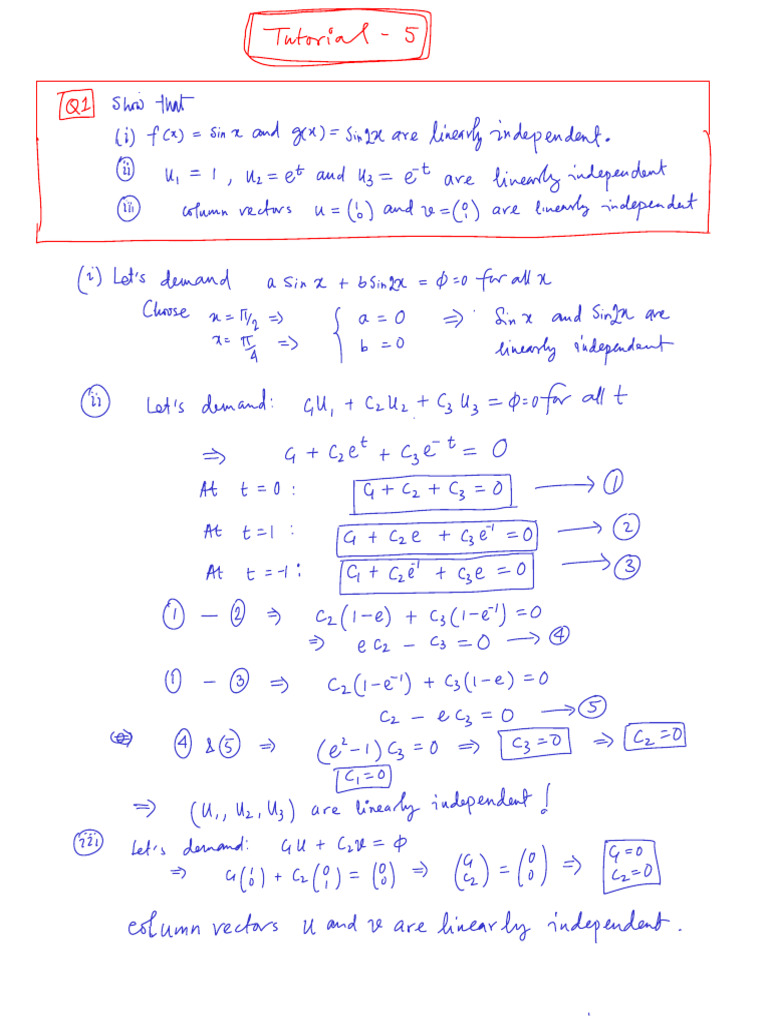 Tutorial - 5
Q1 Show that
(i) f(x) = sin x and g(x) = sin 2x are linearly independent.
(ii) u₁ = 1 , u₂ = eᵗ and u₃ = e⁻ᵗ are linearly independent
(iii) column vectors u = (1 0) and v = (0 1) are linearly independent
(i) Let's demand a sin x + b sin 2x = ϕ = 0 for all x
Choose x = π/2 ⇒ { a = 0 ⇒ Sin x and Sin 2x are
x = π/4 ⇒ b = 0 linearly independent
(ii) Let's demand: C₁U₁ + C₂U₂ + C₃U₃ = ϕ = 0 for all t
⇒ C₁ + C₂eᵗ + C₃e⁻ᵗ = 0
At t = 0 : C₁ + C₂ + C₃ = 0 → ①
At t = 1 : C₁ + C₂e + C₃e⁻¹ = 0 → ②
At t = -1 : C₁ + C₂e⁻¹ + C₃e = 0 → ③
① - ② ⇒ C₂(1-e) + C₃(1-e⁻¹) = 0
⇒ e C₂ - C₃ = 0 → ④
① - ③ ⇒ C₂(1-e⁻¹) + C₃(1-e) = 0
C₂ - e C₃ = 0 → ⑤
④ & ⑤ ⇒ (e²-1) C₃ = 0 ⇒ C₃ = 0 ⇒ C₂ = 0
C₁ = 0
⇒ (U₁, U₂, U₃) are linearly independent!
(iii) Let's demand: C₁U + C₂v = ϕ
⇒ C₁(1 0) + C₂(0 1) = (0 0) ⇒ (C₁ C₂) = (0 0) ⇒ C₁ = 0 C₂ = 0
column vectors u and v are linearly independent.